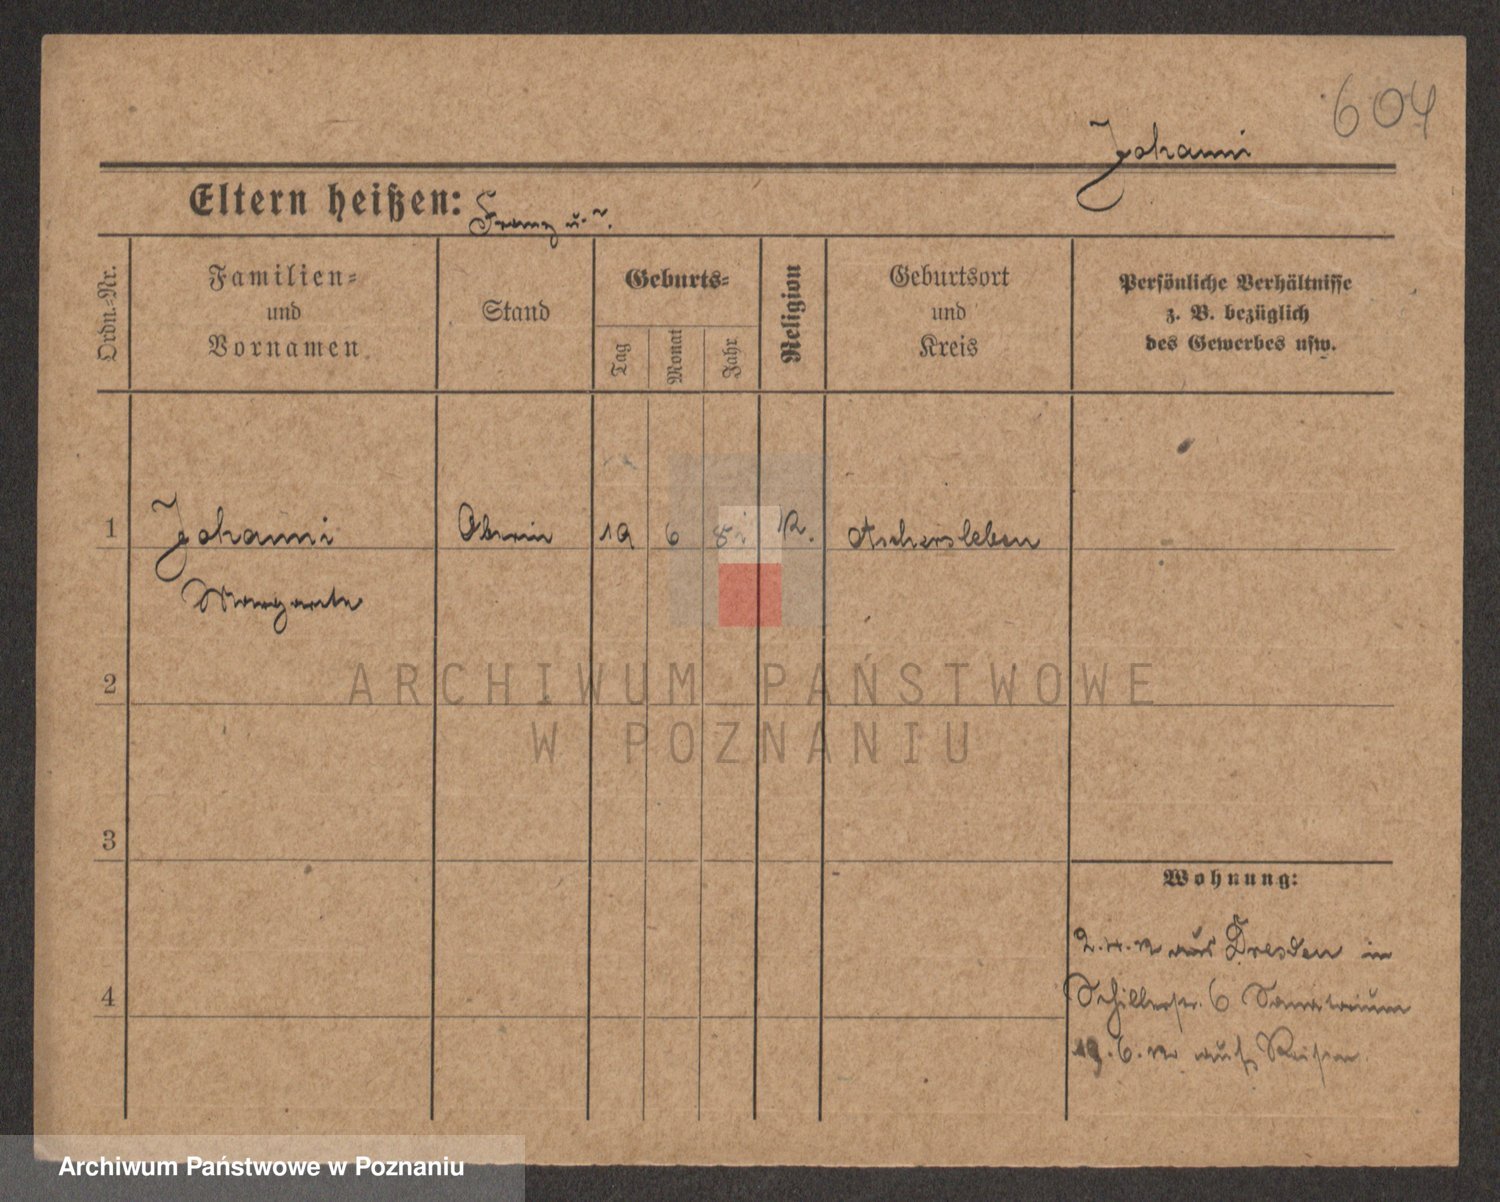 604
Johanni
Eltern heißen: Franz u. ?.
Ordn.-Nr.
Familien-
und
Vornamen
Stand
Geburts-
Tag
Monat
Jahr
Religion
Geburtsort
und
Kreis
Persönliche Verhältnisse
z. B. bezüglich
des Gewerbes usw.
1
Johanni
Oberin
19
6
K.
Aschersleben
Margarete
2
ARCHIWUM PAŃSTWOWE
W POZNANIU
3
Wohnung:
aus Dresden in
4
Schillerstr. 6 Sanatorium
19.6. auf Reisen
Archiwum Państwowe w Poznaniu